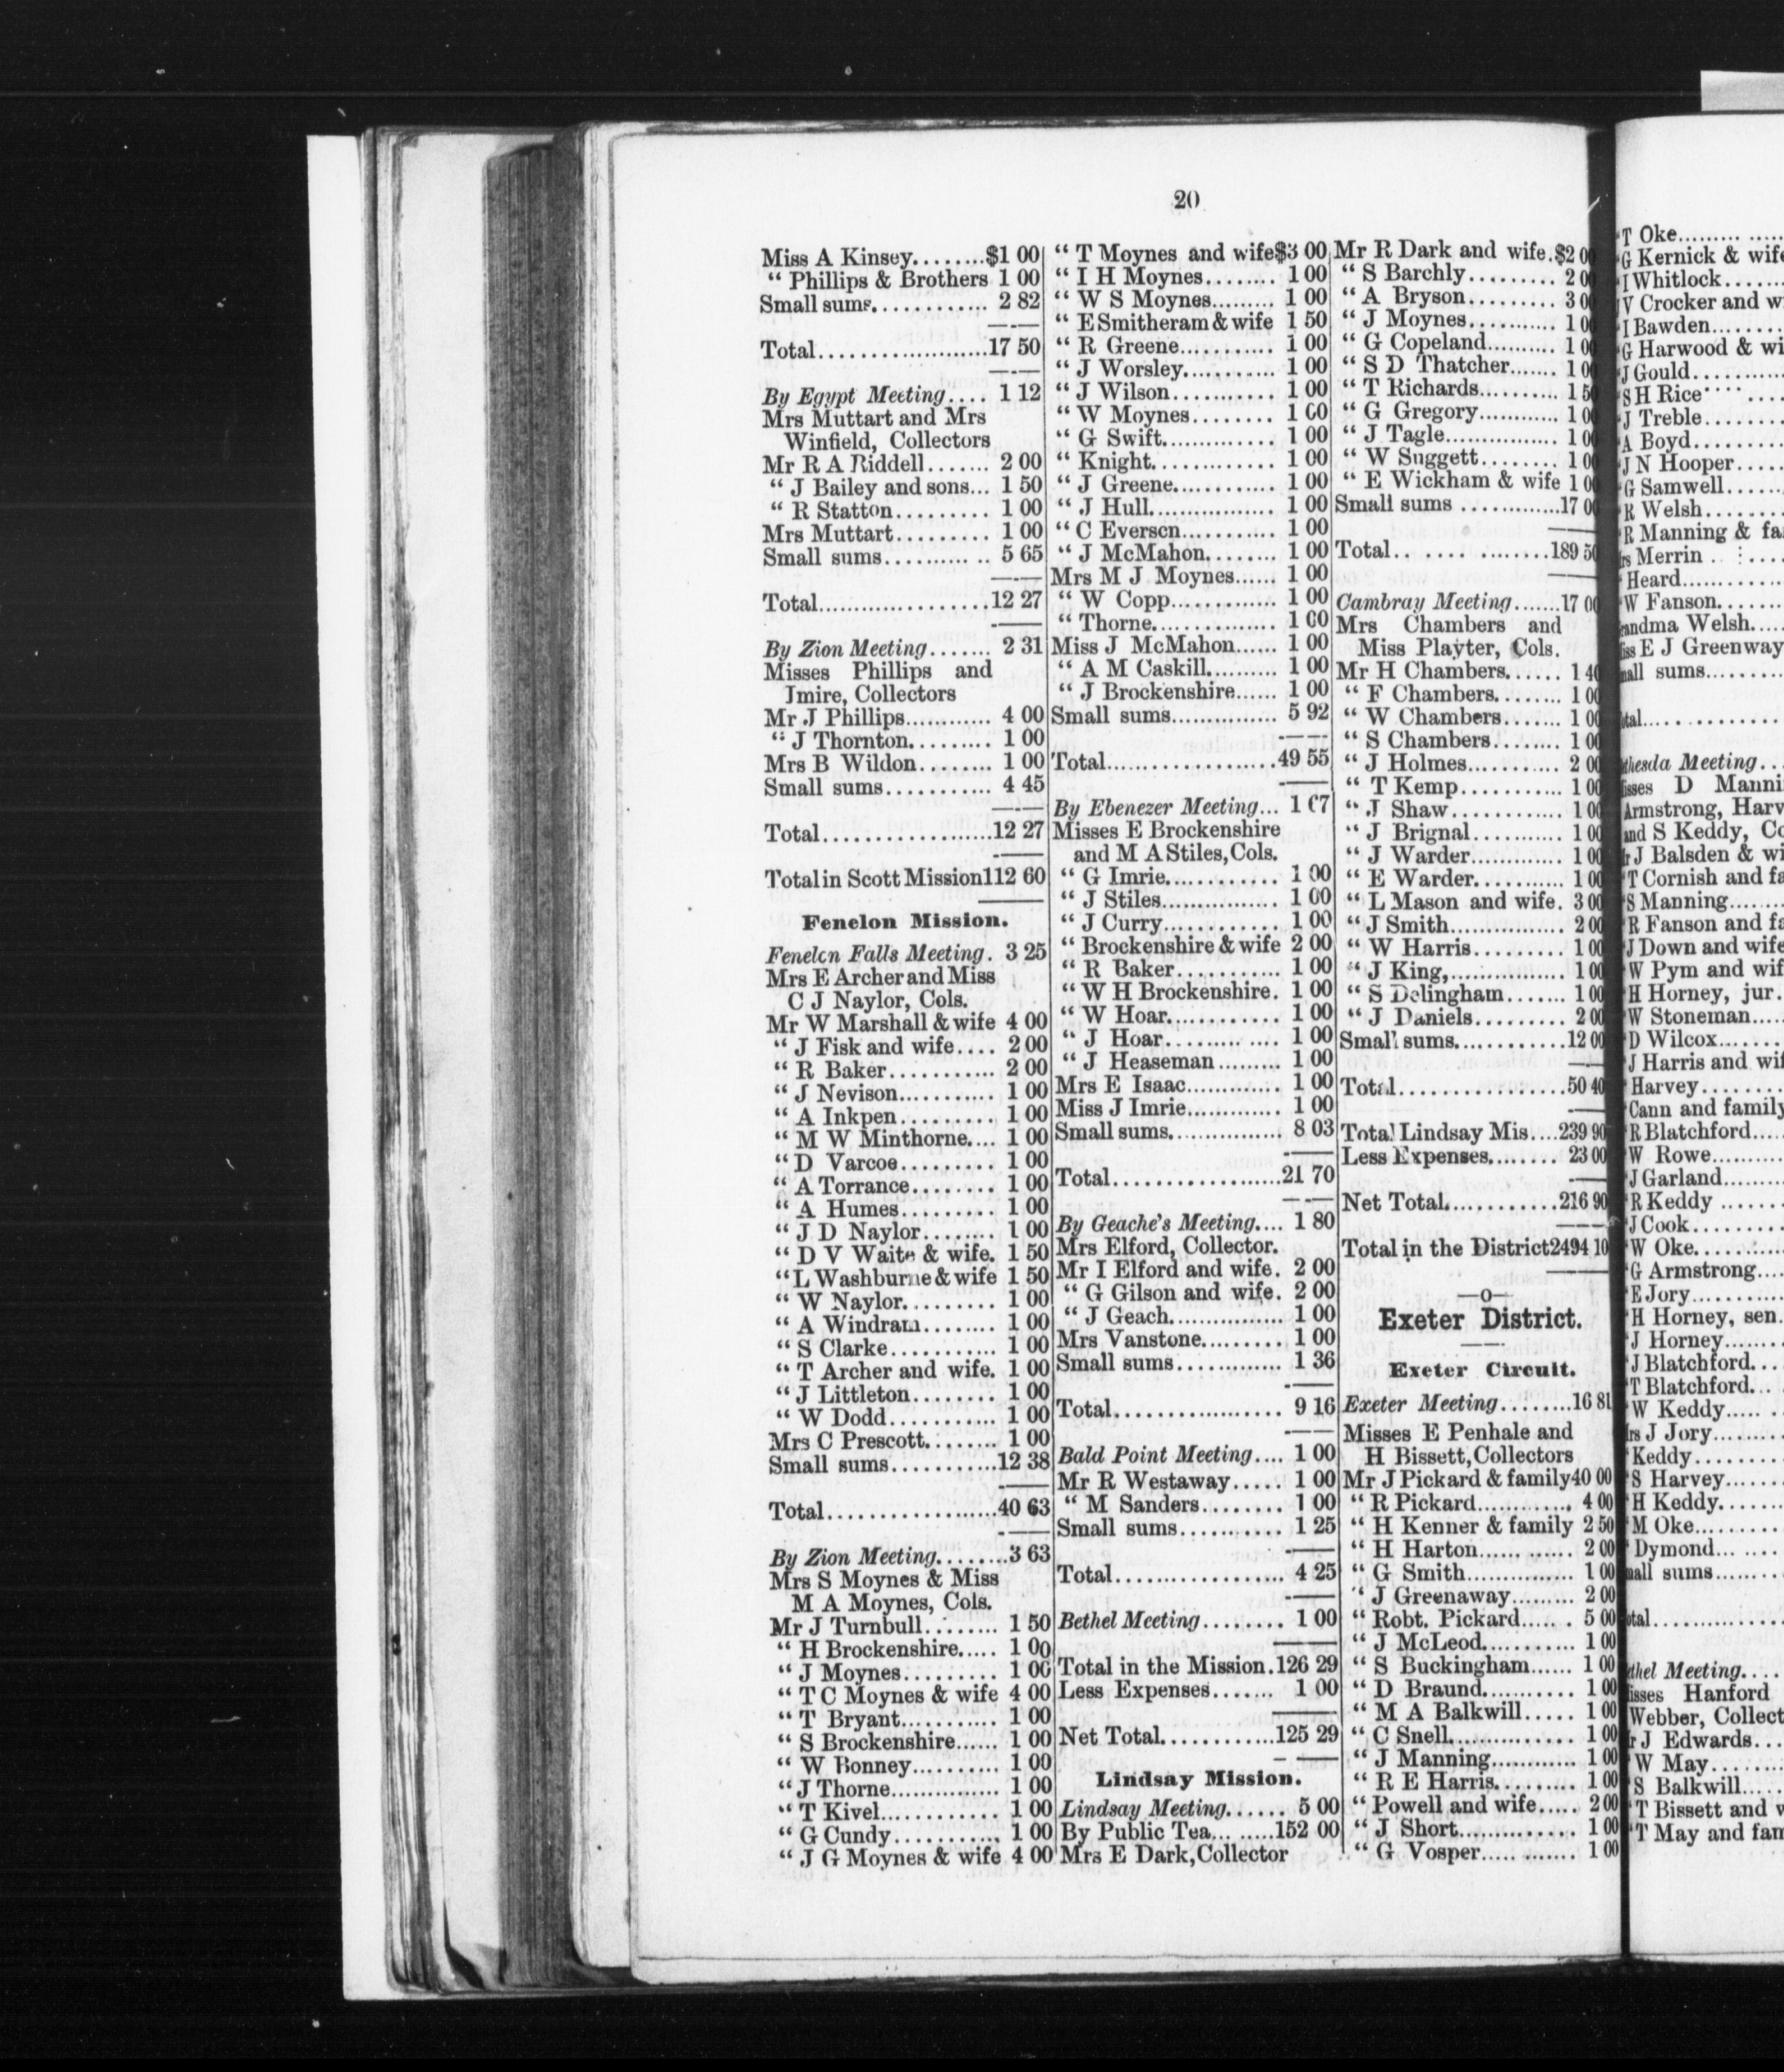 20
Miss A Kinsey........$1 00
“ Phillips & Brothers 1 00
Small sums............. 2 82
Total.....................17 50
By Egypt Meeting.... 1 12
Mrs Muttart and Mrs
Winfield, Collectors
Mr R A Riddell....... 2 00
“ J Bailey and sons... 1 50
“ R Statton.......... 1 00
Mrs Muttart.......... 1 00
Small sums............ 5 65
Total.....................12 27
By Zion Meeting....... 2 31
Misses Phillips and
Jmire, Collectors
Mr J Phillips............ 4 00
“ J Thornton.......... 1 00
Mrs B Wildon......... 1 00
Small sums............ 4 45
Total.....................12 27
Total in Scott Mission112 60
Fenelon Mission.
Fenelon Falls Meeting. 3 25
Mrs E Archer and Miss
C J Naylor, Cols.
Mr W Marshall & wife 4 00
“ J Fisk and wife.... 2 00
“ R Baker............ 2 00
“ J Nevison........... 1 00
“ A Inkpen........... 1 00
“ M W Minthorne.... 1 00
“ D Varcoe.......... 1 00
“ A Torrance......... 1 00
“ A Humes........... 1 00
“ J D Naylor......... 1 00
“ D V Waite & wife. 1 50
“ L Washburne & wife 1 50
“ W Naylor.......... 1 00
“ A Windram........ 1 00
“ S Clarke............ 1 00
“ T Archer and wife. 1 00
“ J Littleton.......... 1 00
“ W Dodd............ 1 00
Mrs C Prescott......... 1 00
Small sums............12 38
Total.....................40 63
By Zion Meeting........3 63
Mrs S Moynes & Miss
M A Moynes, Cols.
Mr J Turnbull......... 1 50
“ H Brockenshire..... 1 00
“ J Moynes.......... 1 00
“ T C Moynes & wife 4 00
“ T Bryant........... 1 00
“ S Brockenshire...... 1 00
“ W Bonney.......... 1 00
“ J Thorne............. 1 00
“ T Kivel............. 1 00
“ G Cundy............ 1 00
“ J G Moynes & wife 4 00
“ T Moynes and wife$3 00
“ I H Moynes........ 1 00
“ W S Moynes......... 1 00
“ E Smitheram & wife 1 50
“ R Greene........... 1 00
“ J Worsley............ 1 00
“ J Wilson............ 1 00
“ W Moynes......... 1 00
“ G Swift.............. 1 00
“ Knight.............. 1 00
“ J Greene............ 1 00
“ J Hull................ 1 00
“ C Everson........... 1 00
“ J McMahon......... 1 00
Mrs M J Moynes...... 1 00
“ W Copp............. 1 00
“ Thorne................ 1 00
Miss J McMahon...... 1 00
“ A M Caskill.......... 1 00
“ J Brockenshire...... 1 00
Small sums............... 5 92
Total.....................49 55
By Ebenezer Meeting... 1 67
Misses E Brockenshire
and M A Stiles, Cols.
“ G Imrie............. 1 00
“ J Stiles............... 1 00
“ J Curry.............. 1 00
“ Brockenshire & wife 2 00
“ R Baker........... 1 00
“ W H Brockenshire. 1 00
“ W Hoar............. 1 00
“ J Hoar............... 1 00
“ J Heaseman......... 1 00
Mrs E Isaac............. 1 00
Miss J Imrie............. 1 00
Small sums............... 8 03
Total.....................21 70
By Geache's Meeting.... 1 80
Mrs Elford, Collector.
Mr I Elford and wife. 2 00
“ G Gilson and wife. 2 00
“ J Geach.............. 1 00
Mrs Vanstone.......... 1 00
Small sums............. 1 36
Total..................... 9 16
Bald Point Meeting.... 1 00
Mr R Westaway..... 1 00
“ M Sanders......... 1 00
Small sums............ 1 25
Total.................... 4 25
Bethel Meeting......... 1 00
Total in the Mission.126 29
Less Expenses....... 1 00
Net Total............125 29
Lindsay Mission.
Lindsay Meeting...... 5 00
By Public Tea........152 00
Mrs E Dark, Collector
Mr R Dark and wife.$2 00
“ S Barchly......... 2 00
“ A Bryson......... 3 00
“ J Moynes........... 1 00
“ G Copeland.......... 1 00
“ S D Thatcher....... 1 00
“ T Richards.......... 1 50
“ G Gregory........... 1 00
“ J Tagle................ 1 00
“ W Suggett......... 1 00
“ E Wickham & wife 1 00
Small sums .............17 00
Total.....................189 50
Cambray Meeting.......17 00
Mrs Chambers and
Miss Playter, Cols.
Mr H Chambers...... 1 40
“ F Chambers......... 1 00
“ W Chambers....... 1 00
“ S Chambers........ 1 00
“ J Holmes........... 2 00
“ T Kemp............ 1 00
“ J Shaw............. 1 00
“ J Brignal........... 1 00
“ J Warder............. 1 00
“ E Warder........... 1 00
“ L Mason and wife. 3 00
“ J Smith............... 2 00
“ W Harris.......... 1 00
“ J King,............... 1 00
“ S Delingham....... 1 00
“ J Daniels.......... 2 00
Small sums............12 00
Total.................50 40
Total Lindsay Mis....239 90
Less Expenses........ 23 00
Net Total............216 90
Total in the District2494 10
—o—
Exeter District.
Exeter Circuit.
Exeter Meeting........16 81
Misses E Penhale and
H Bissett, Collectors
Mr J Pickard & family40 00
“ R Pickard............ 4 00
“ H Kenner & family 2 50
“ H Harton............ 2 00
“ G Smith............... 1 00
“ J Greenaway......... 2 00
“ Robt. Pickard...... 5 00
“ J McLeod........... 1 00
“ S Buckingham...... 1 00
“ D Braund........... 1 00
“ M A Balkwill..... 1 00
“ C Snell............... 1 00
“ J Manning............ 1 00
“ R E Harris.......... 1 00
“ Powell and wife..... 2 00
“ J Short.............. 1 00
“ G Vosper............. 1 00
T Oke
G Kernick & wife
I Whitlock
V Crocker and
I Bawden
G Harwood &
J Gould
S H Rice
J Treble
A Boyd
J N Hooper
G Samwell
R Welsh
R Manning &
Merrin
Heard
W Fanson
Welsh
E J Greenway
sums
Meeting
D
Armstrong,
and S Keddy,
J Balsden &
T Cornish and
S Manning
R Fanson and
J Down and wife
W Pym and
H Horney, jur.
W Stoneman
D Wilcox
J Harris and
Harvey
Cann and family
R Blatchford
W Rowe
J Garland
R Keddy
J Cook
W Oke
G Armstrong
E Jory
H Horney, sen.
J Horney
J Blatchford
T Blatchford
W Keddy
J Jory
Keddy
S Harvey
H Keddy
M Oke
Dymond
sums
Meeting
Hanford
Webber,
J Edwards
W May
S Balkwill
T Bissett and
T May and